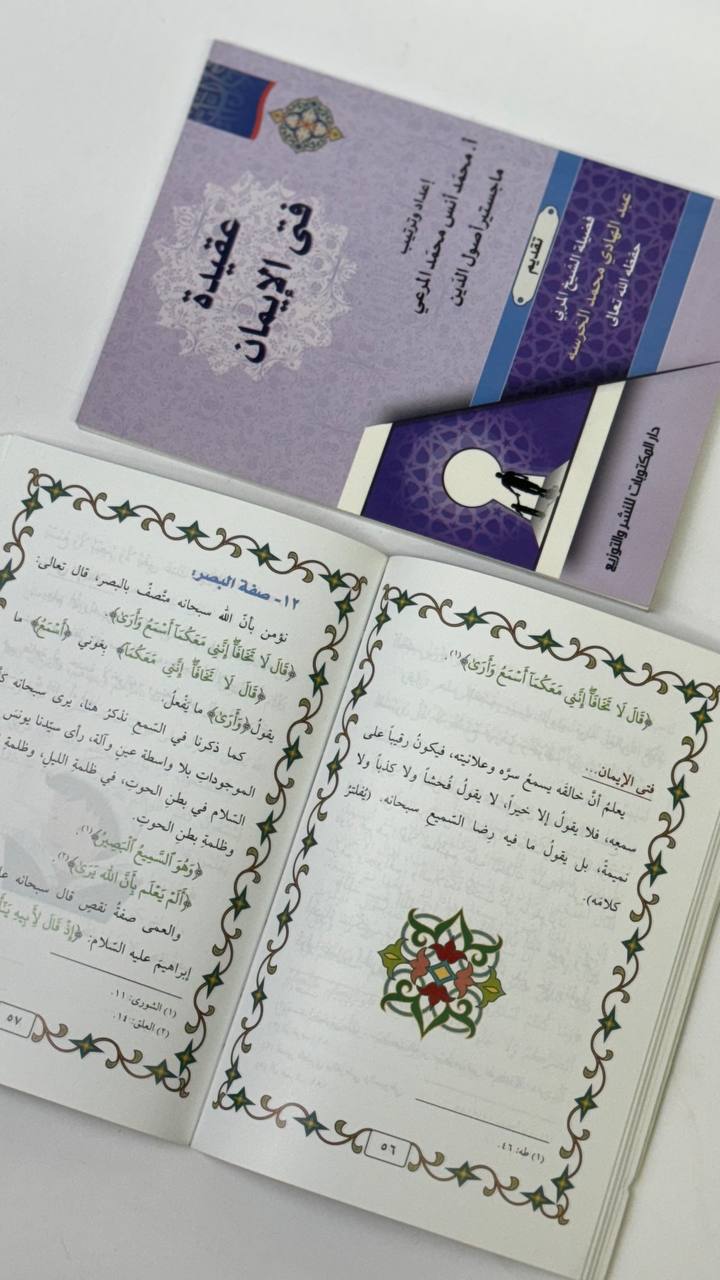 عقيدة
فتى الإيمان
إعداد وترتيب
أ. محمد أنس محمد المرعي
ماجستير أصول الدين
تقديم
فضيلة الشيخ المربي
عبد الهادي محمد الخرسة
حفظه الله تعالى
دار المكتوبات للنشر والتوزيع
﴿قَالَ لَا تَخَافَآ إِنَّنِي مَعَكُمَآ أَسْمَعُ وَأَرَىٰ﴾(١).
فتى الإيمان...
يعلمُ أنَّ خالقَه يسمعُ سرَّه وعلانيته، فيكونُ رقيباً على
سمعِه، فلا يقولُ إلا خيراً، لا يقولُ فُحشاً ولا كذباً ولا
نميمةً، بل يقولُ ما فيه رِضا السَّميعِ سبحانه. (يُفَلتِرُ
كلامَه).
(١) طه: ٤٦.
٥٦
١٢- صفة البصر:
نؤمن بأنَّ الله سبحانه متَّصفٌ بالبصرِ، قال تعالى:
﴿قَالَ لَا تَخَافَآ إِنَّنِي مَعَكُمَآ أَسْمَعُ وَأَرَىٰ﴾.
﴿قَالَ لَا تَخَافَآ إِنَّنِي مَعَكُمَآ﴾ بِعَوني ﴿أَسْمَعُ﴾ ما
يقولُ ﴿وَأَرَىٰ﴾ ما يَفْعلُ.
كما ذكرنا في السَّمع نذكرُ هنا، يرى سبحانه
الموجوداتِ بلا واسطة عينٍ وآلة، رأى سيِّدنا يونسَ
السَّلام في بطنِ الحوتِ، في ظلمةِ الليل، وظلمةِ
وظلمةِ بطنِ الحوتِ.
﴿وَهُوَ ٱلسَّمِيعُ ٱلْبَصِيرُ﴾(١).
﴿أَلَمْ يَعْلَم بِأَنَّ ٱللَّهَ يَرَىٰ﴾(٢).
والعمَى صفةُ نقصٍ قال سبحانه
إبراهيمَ عليه السَّلام: ﴿إِذْ قَالَ لِأَبِيهِ
(١) الشورى: ١١.
(٢) العلق: ١٤.
٥٧